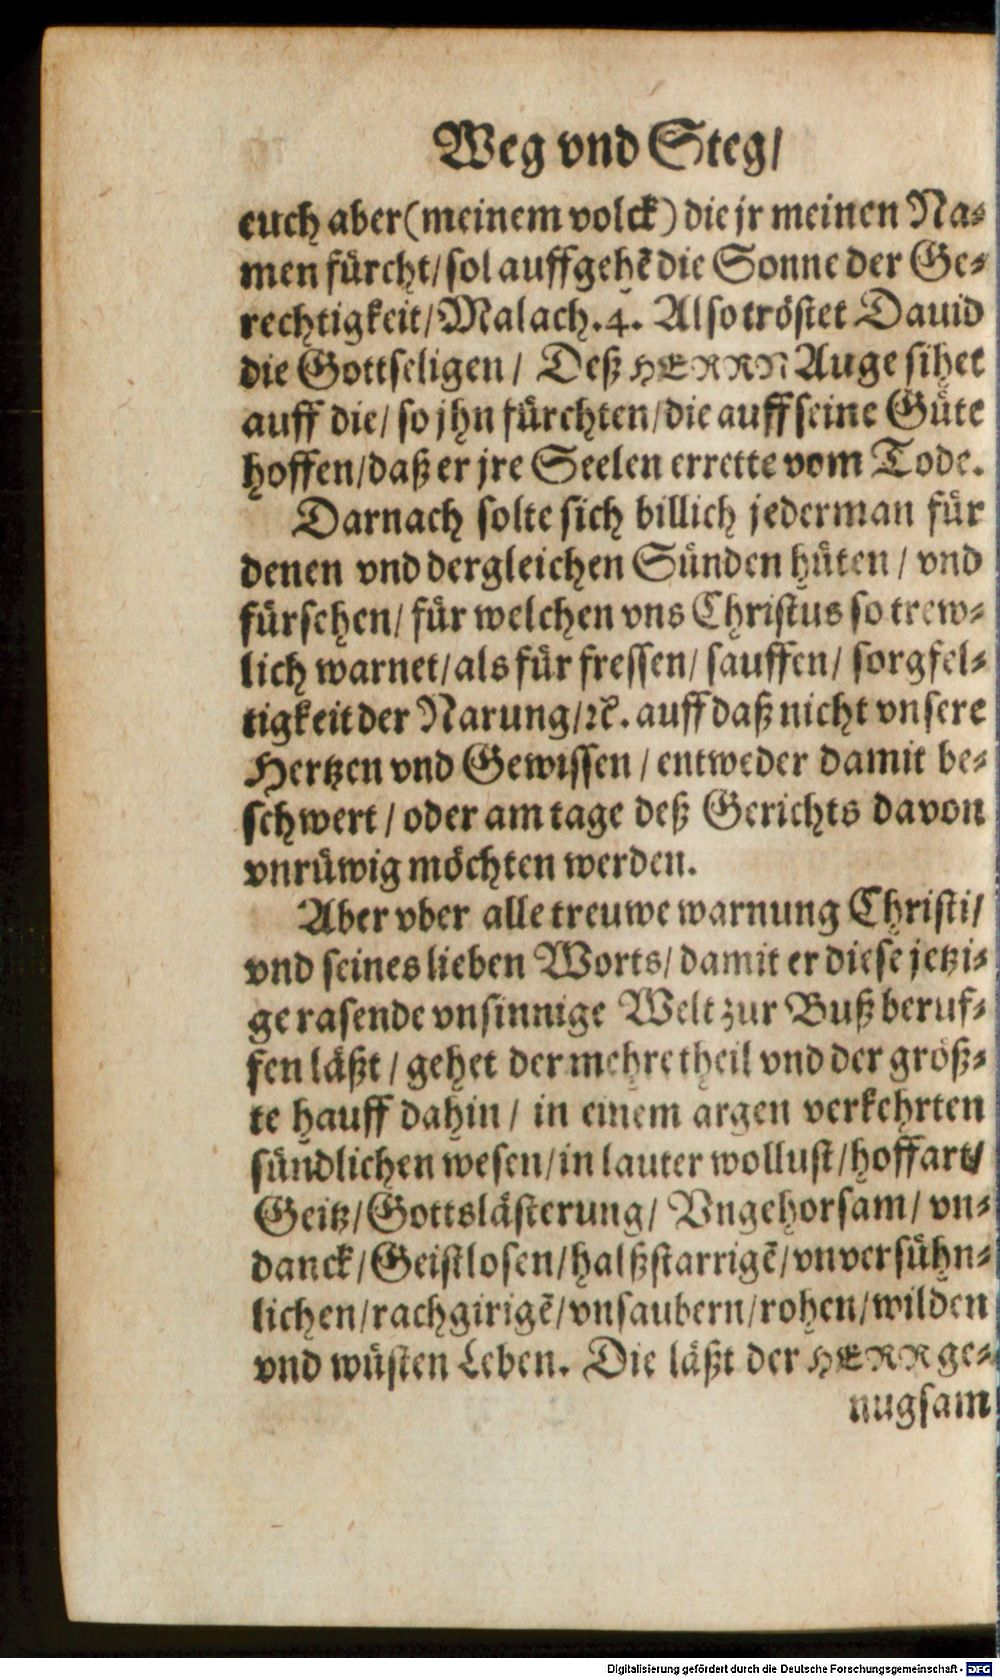 Weg vnd Steg/
euch aber (meinem volck) die jr meinen Na-
men fürcht/ sol auffgehẽ die Sonne der Ge-
rechtigkeit/ Malach. 4. Also tröstet Dauid
die Gottseligen / Deß HERRN Auge sihet
auff die/ so jhn fürchten/ die auff seine Güte
hoffen/ daß er jre Seelen errette vom Tode.
Darnach solte sich billich jederman für
denen vnd dergleichen Sünden hüten / vnd
fürsehen/ für welchen vns Christus so trew-
lich warnet/ als für fressen/ sauffen/ sorgfel-
tigkeit der Narung/ ꝛc̃. auff daß nicht vnsere
Hertzen vnd Gewissen / entweder damit be-
schwert / oder am tage deß Gerichts davon
vnrüwig möchten werden.
Aber vber alle treuwe warnung Christi/
vnd seines lieben Worts/ damit er diese jetzi-
ge rasende vnsinnige Welt zur Buß beruf-
fen läßt / gehet der mehre theil vnd der größ-
te hauff dahin / in einem argen verkehrten
sündlichen wesen/ in lauter wollust/ hoffart/
Geitz/ Gottslästerung/ Vngehorsam/ vn-
danck/ Geistlosen/ halßstarrigẽ/ vnversühn-
lichen/ rachgirigẽ/ vnsaubern/ rohen/ wilden
vnd wüsten Leben. Die läßt der HERR ge-
nugsam
Digitalisierung gefördert durch die Deutsche Forschungsgemeinschaft - DFG